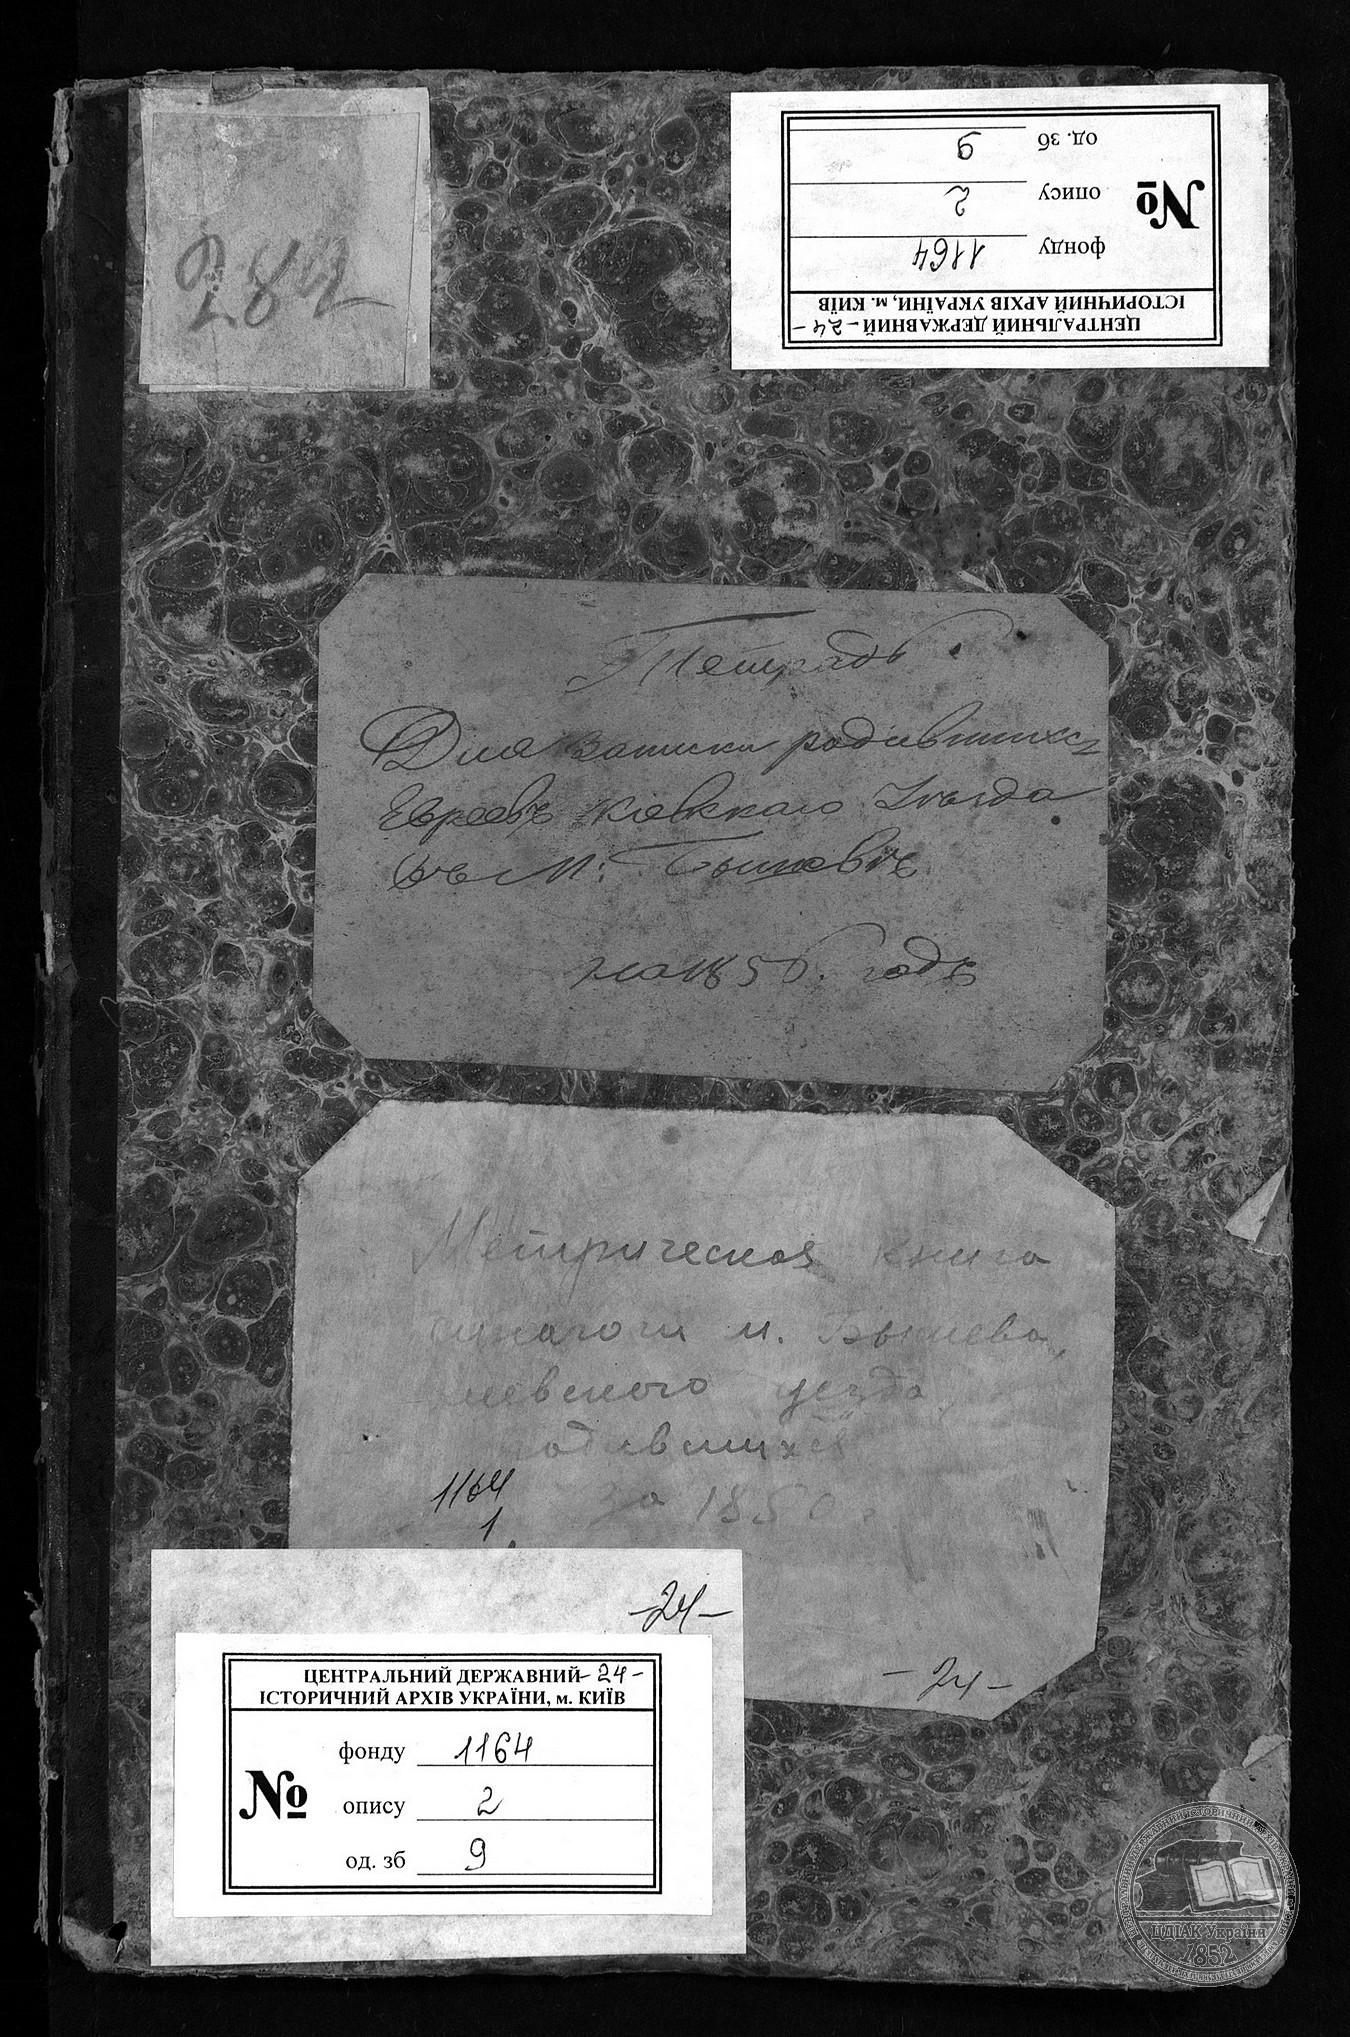 282
од. зб 9
опису 2
фонду 1164
№
ЦЕНТРАЛЬНИЙ ДЕРЖАВНИЙ -24-
ІСТОРИЧНИЙ АРХІВ УКРАЇНИ, м. КИЇВ
Тетрадь
Для записки родившихся
Евреевъ Кіевскаго Уѣзда
въ М: Бышевѣ
на 1850. годъ
Метрическая книга
синагоги м. Бышева,
киевского уезда,
родившихся
за 1850.
1164
1
-24-
-24-
ЦЕНТРАЛЬНИЙ ДЕРЖАВНИЙ -24-
ІСТОРИЧНИЙ АРХІВ УКРАЇНИ, м. КИЇВ
№
фонду 1164
опису 2
од. зб 9
ЦДІАК України
1852